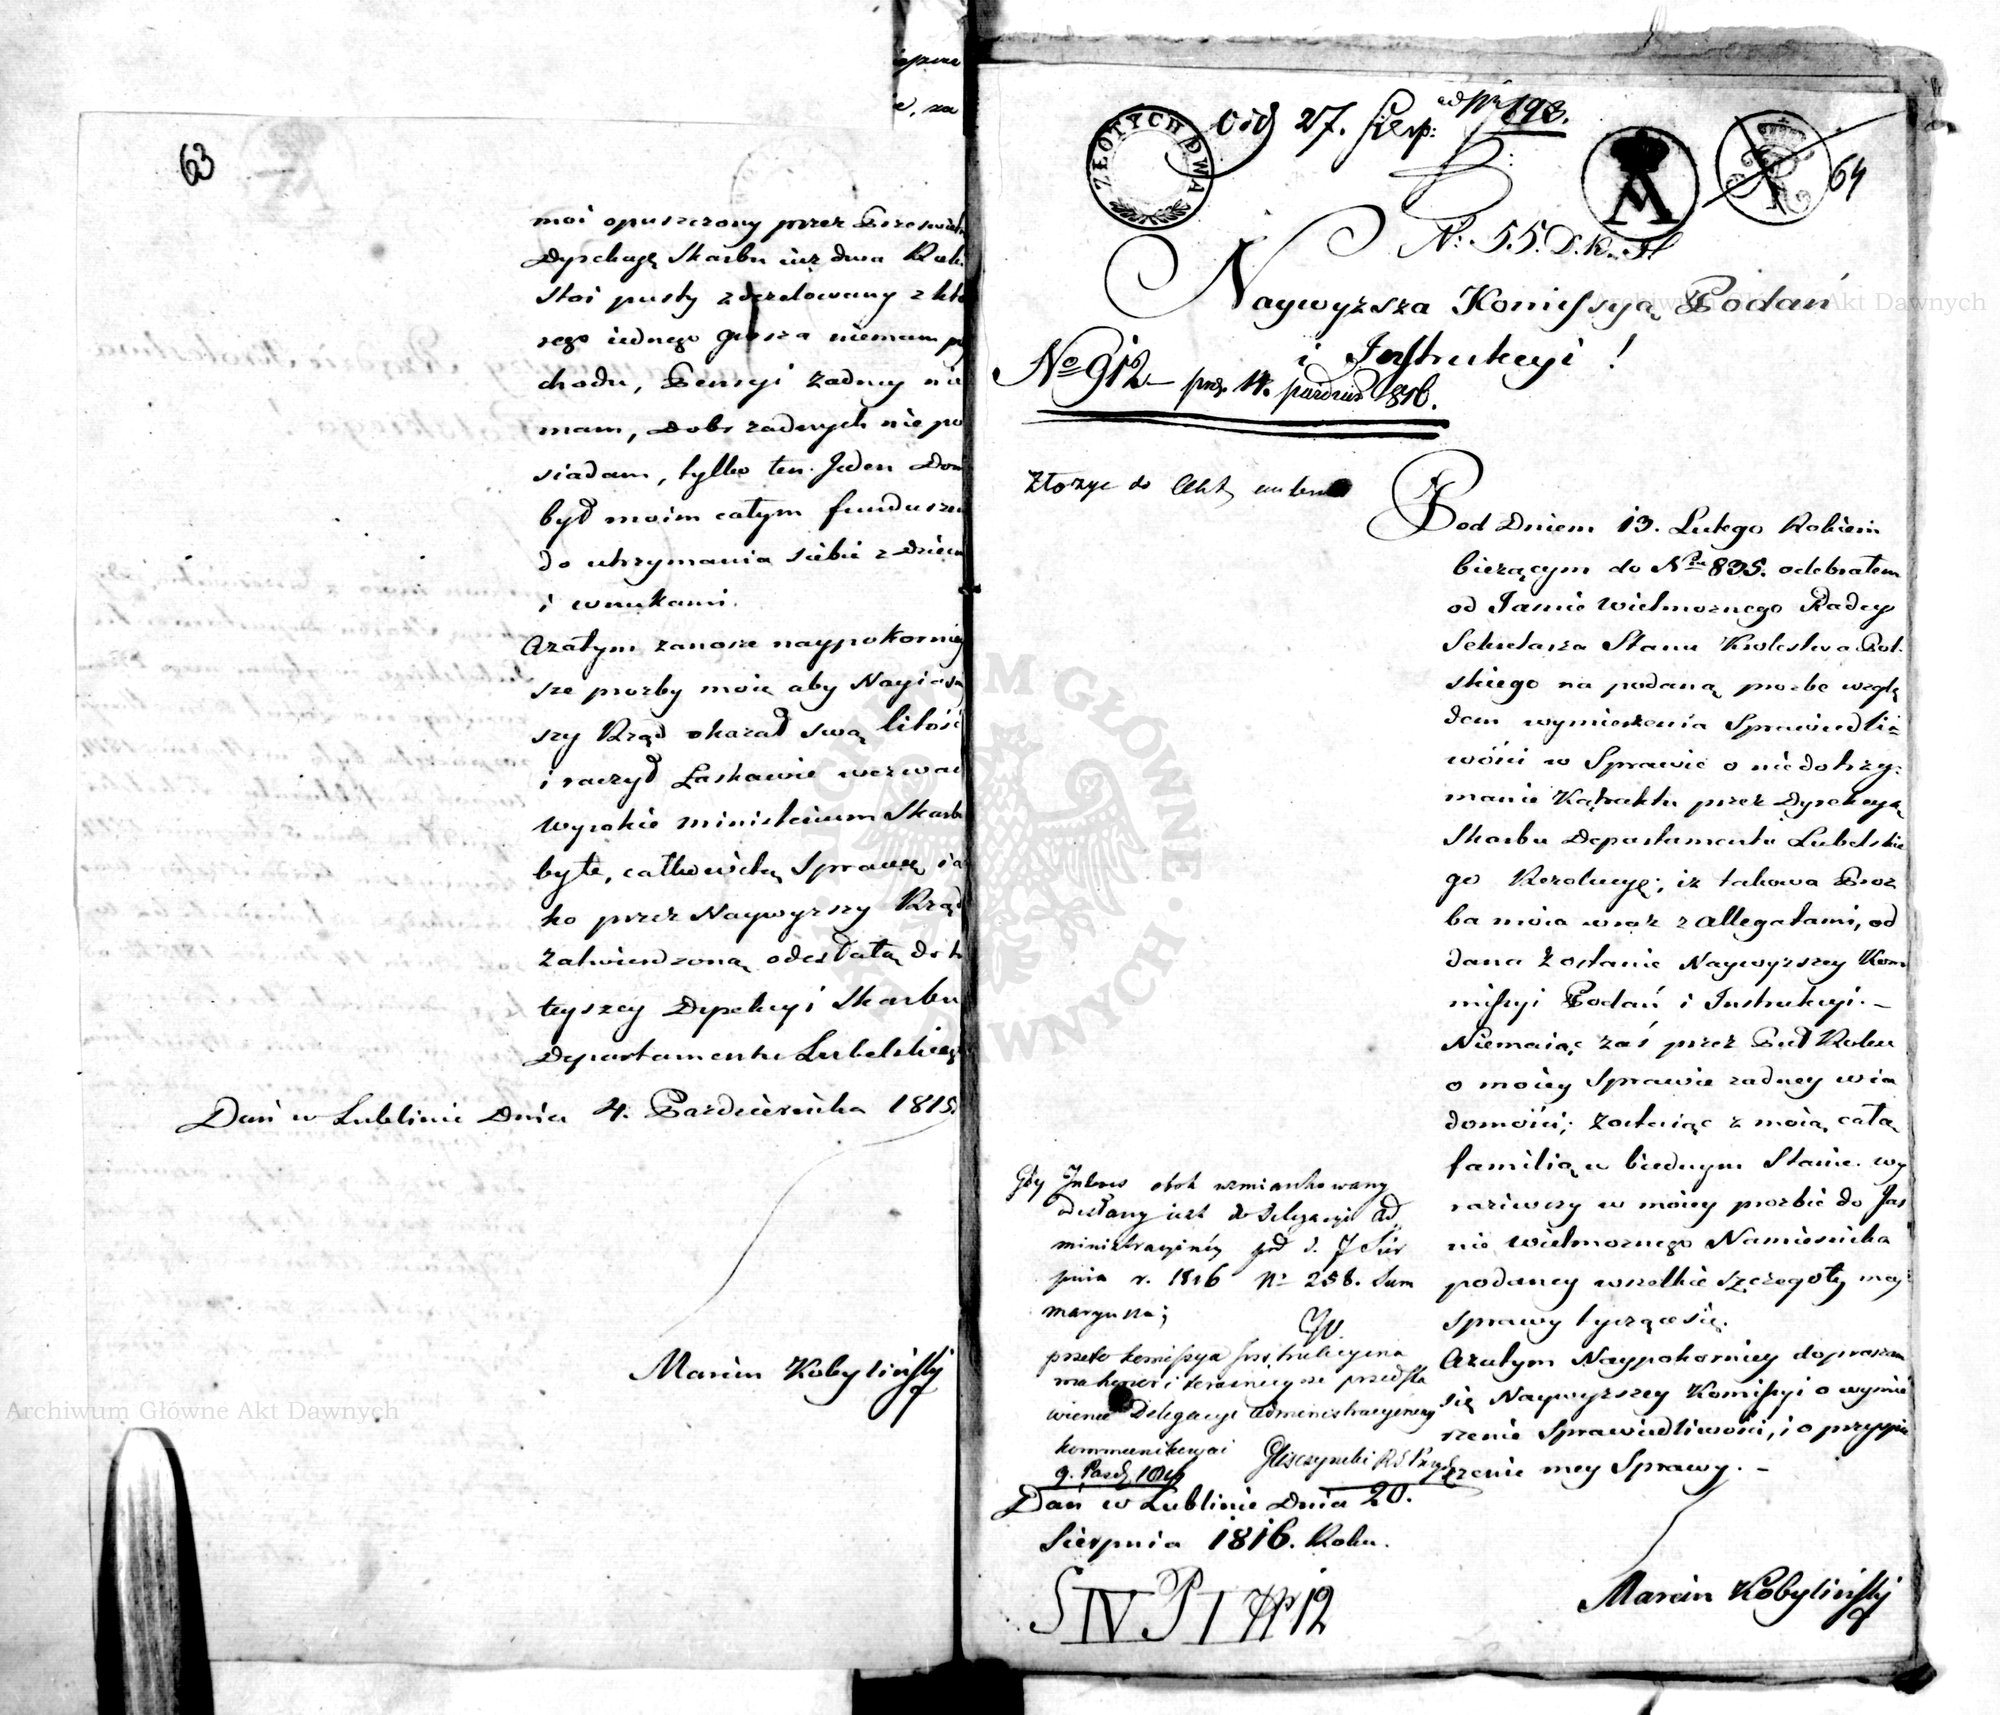 63
moi opuszczony przez Przeswietn
Dyrekcyę Skarbu iuż dwa Roki
stoi pusty zdezelowany z któ
rego iednego grosza niemam
chodu, Pensyi żadney nie
mam, Dobr żadnych nie po
siadam, tylko ten Jeden Dom
był moim całym funduszem
do utrzymania siebie z Dziećm
i wnukami.
Azatym zanosze naypokorniey
sze prozby moie aby Nayiaśn
szy Rząd okazał swą litość
i raczył Łaskawie wezwać
Wysokie ministerium Skarbu
było, całkowitą Sprawę ia
ko przez Naywyrszy Rząd
Zatwierdzoną odesłałą do tu
teyszey Dyrekcyi Skarbu
Departamentu Lubelskiego
Dań w Lublinie Dnia 4. Pazdziernika 1815.
Marcin Kobylińsky
ZŁOTYCH DWA
Od 27. Sierp:
ad Nr 893.
64
N: 55. D.K.
Naywyższa Komissyą Podań
i Instrukcyi !
No 912 prez. 14. pazdzier 1816.
Złożyć do Akt
Pod Dniem 13. Lutego Rokiem
bieżącym do Nru 835. odebrałem
od Jaśnie Wielmoznego Radcy
Sekretarza Stanu Krolestwa Pol-
skiego na podaną prozbe wzglę
dem wymierzenia Sprawiedli=
wości w Sprawie o niedotrzy=
manie Kątraktu przez Dyrekcyą
Skarbu Departamentu Lubelskie
go Rezolucyę; iż takowa Proz
ba moia wraz z Allegatami, od
dana Zostanie Naywyrszey Kom
missyi Podań i Instrukcyi. –
Niemaiąc zaś przez Puł Roku
o moiey Sprawie zadney wia
domości; zostaiąc z moią całą
familią w biednym Stanie. wy
raziwszy w moiey prozbie do Jas
nie Wielmoznego Namiesnika
podaney wszelkie szczegoły mey
Sprawy tyczące się.
Azatym Naypokorniey dopraszam
się Naywyrszey Komissyi o wymie
rzenie Sprawiedliwości, i o przyspie
szenie mey Sprawy. –
Gdy Interes obok wzmiankowany
odesłany iest do Delegacyi Ad
ministracyiney pod d. 7 Sier
pnia r. 1816 Nr 258. Sum
maryusza;
przeto komissya Instrukcyina
ma honor i terazniejsze przedsta
wienie Delegacyi Administracyiney
kommunikowai
9. Pazdz 1816 Gliszczynski RS Prezyd
Dań w Lublinie Dnia 20.
Sierpnia 1816. Roku.
S IV P I Nr 12
Marcin Kobylińsky
Archiwum Główne Akt Dawnych
Archiwum Główne Akt Dawnych
ARCHIWUM GŁÓWNE · AKT DAWNYCH ·